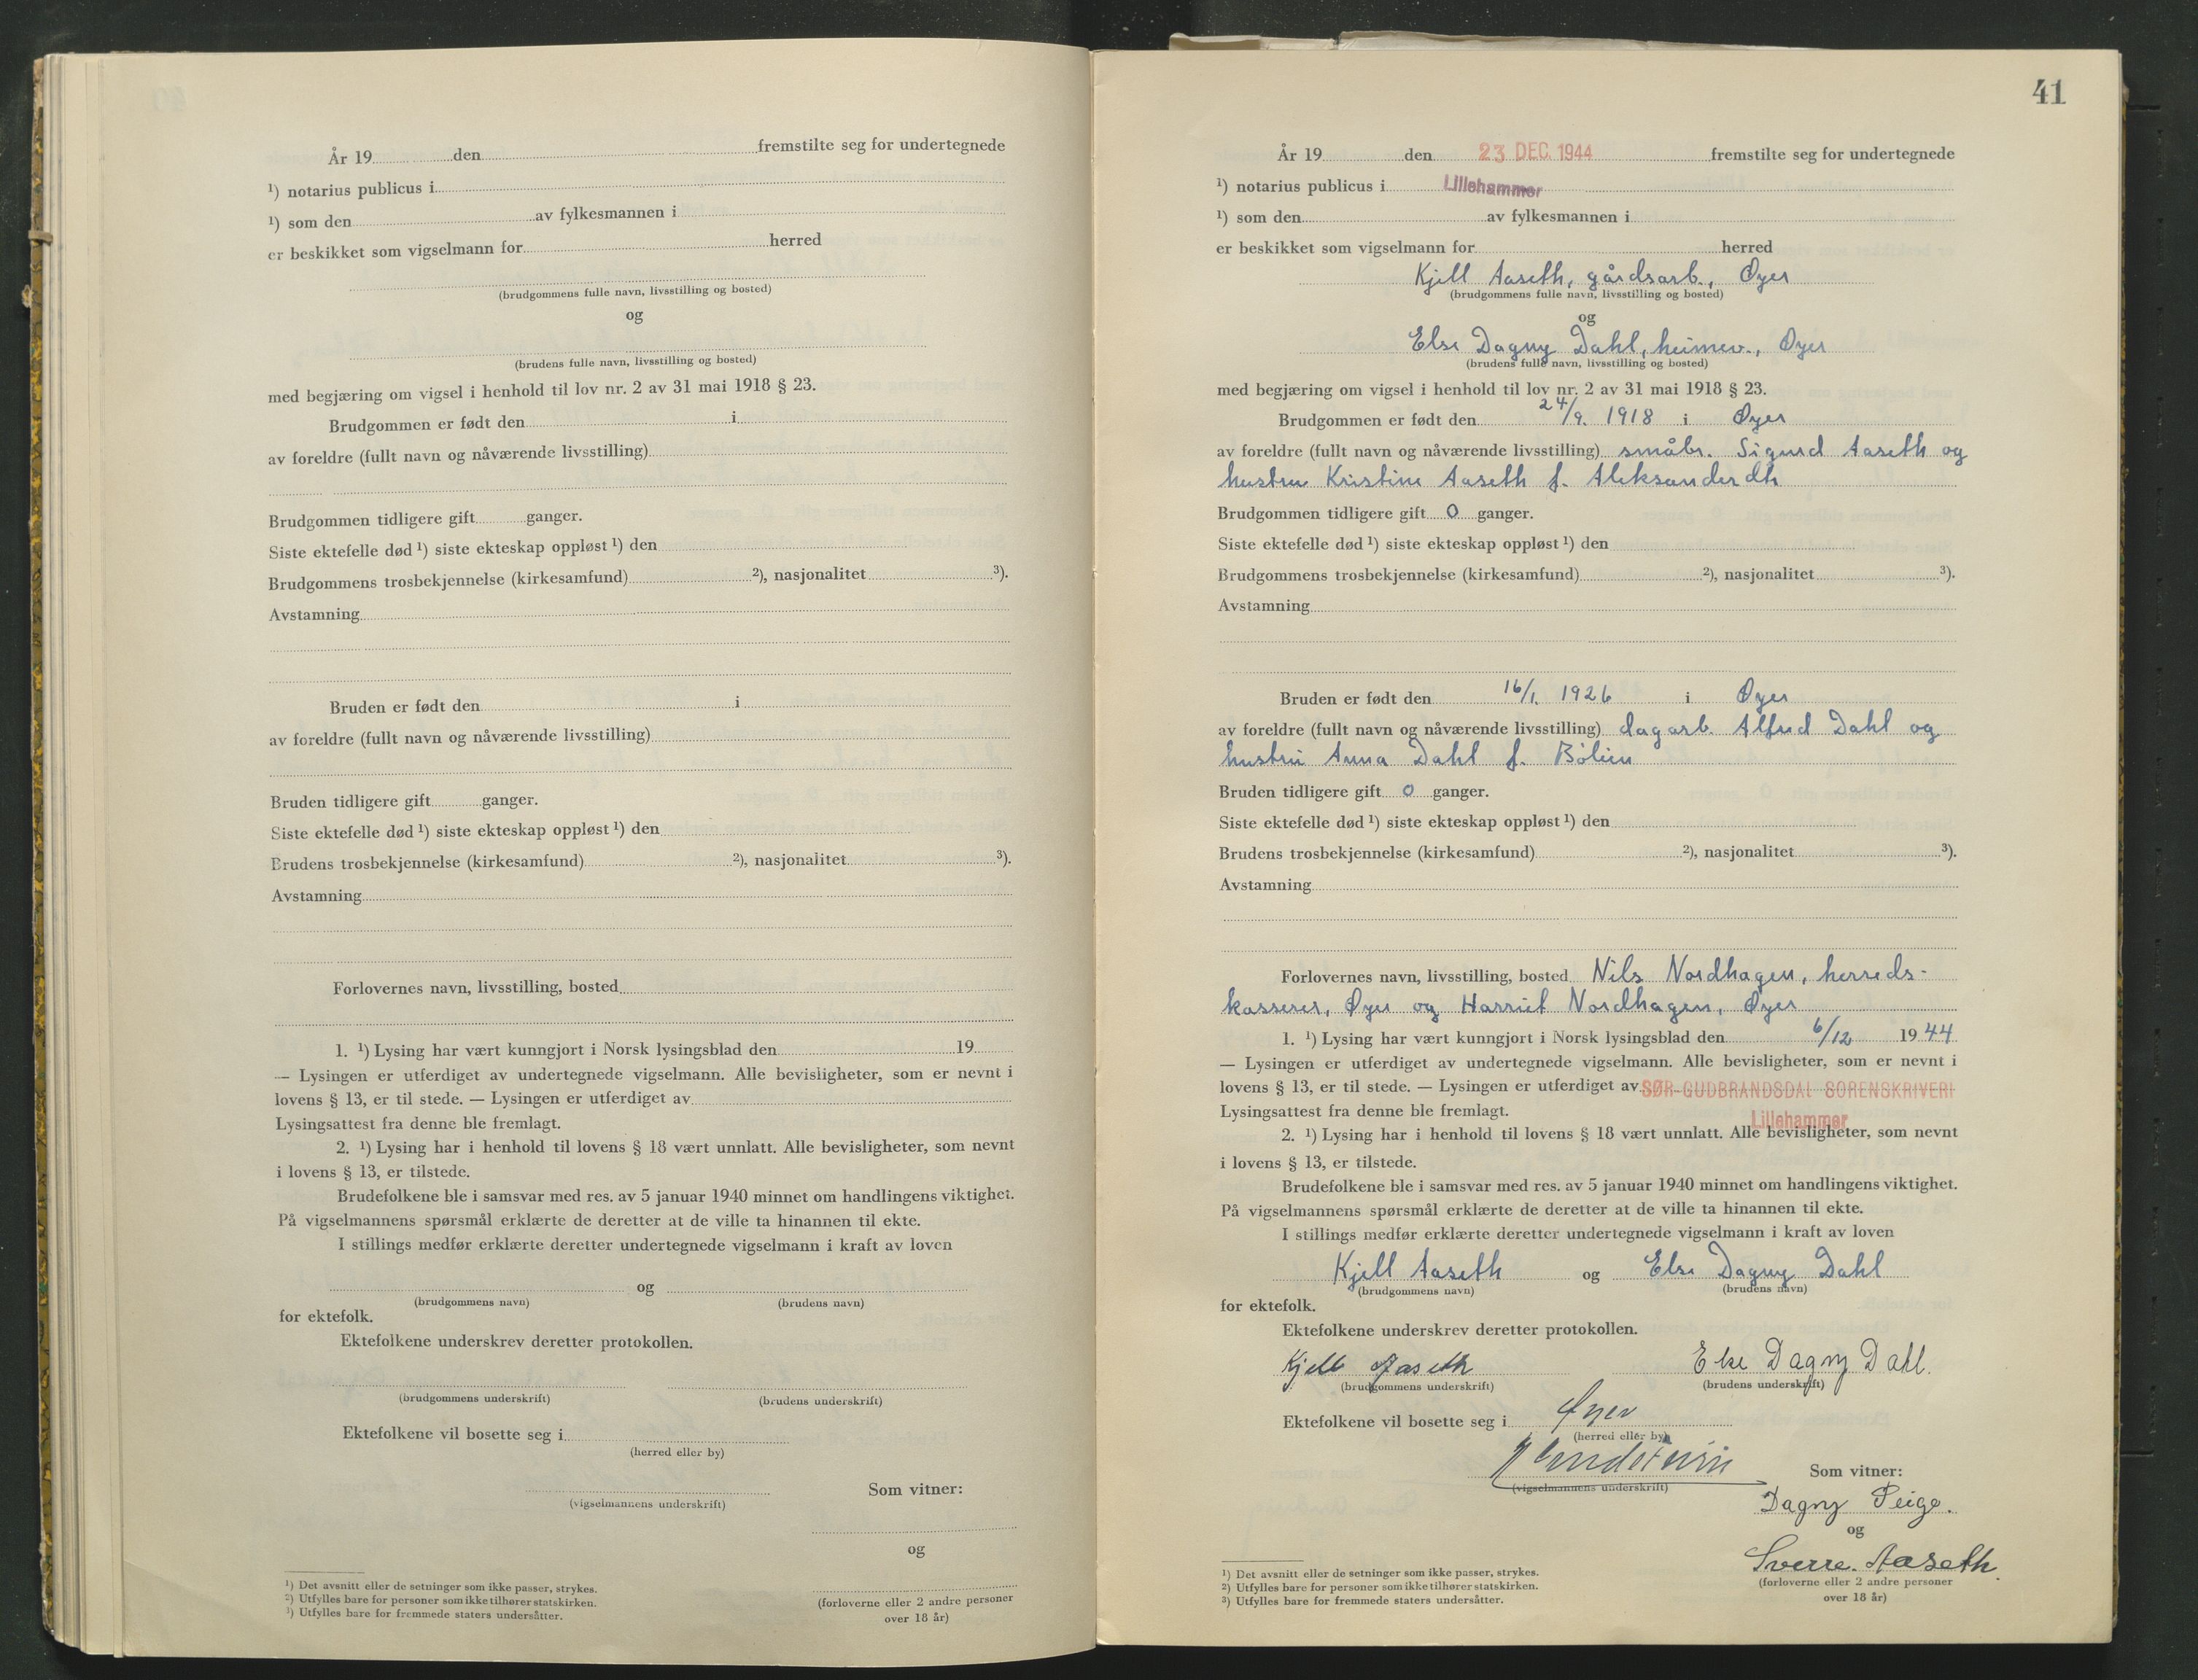 År 19 den fremstilte seg for undertegnede
¹) notarius publicus i
¹) som den av fylkesmannen i
er beskikket som vigselmann for herred
(brudgommens fulle navn, livsstilling og bosted)
og
(brudens fulle navn, livsstilling og bosted)
med begjæring om vigsel i henhold til lov nr. 2 av 31 mai 1918 § 23.
Brudgommen er født den i
av foreldre (fullt navn og nåværende livsstilling)
Brudgommen tidligere gift ganger.
Siste ektefelle død ¹) siste ekteskap oppløst ¹) den
Brudgommens trosbekjennelse (kirkesamfund) ²), nasjonalitet ³).
Avstamning
Bruden er født den i
av foreldre (fullt navn og nåværende livsstilling)
Bruden tidligere gift ganger.
Siste ektefelle død ¹) siste ekteskap oppløst ¹) den
Brudens trosbekjennelse (kirkesamfund) ²), nasjonalitet ³).
Avstamning
Forlovernes navn, livsstilling, bosted
1. ¹) Lysing har vært kunngjort i Norsk lysingsblad den 19
— Lysingen er utferdiget av undertegnede vigselmann. Alle bevisligheter, som er nevnt i
lovens § 13, er til stede. — Lysingen er utferdiget av
Lysingsattest fra denne ble fremlagt.
2. ¹) Lysing har i henhold til lovens § 18 vært unnlatt. Alle bevisligheter, som nevnt
i lovens § 13, er tilstede.
Brudefolkene ble i samsvar med res. av 5 januar 1940 minnet om handlingens viktighet.
På vigselmannens spørsmål erklærte de deretter at de ville ta hinannen til ekte.
I stillings medfør erklærte deretter undertegnede vigselmann i kraft av loven
og
(brudgommens navn) (brudens navn)
for ektefolk.
Ektefolkene underskrev deretter protokollen.
(brudgommens underskrift) (brudens underskrift)
Ektefolkene vil bosette seg i
(herred eller by)
Som vitner:
(vigselmannens underskrift)
og
(forloverne eller 2 andre personer
over 18 år)
¹) Det avsnitt eller de setninger som ikke passer, strykes.
²) Utfylles bare for personer som ikke tilhører statskirken.
³) Utfylles bare for fremmede staters undersåtter.
41
År 19 den 23 DEC. 1944 fremstilte seg for undertegnede
¹) notarius publicus i Lillehammer
¹) som den av fylkesmannen i
er beskikket som vigselmann for herred
Kjell Aaseth, gårdsarb., Øyer
(brudgommens fulle navn, livsstilling og bosted)
og
Else Dagny Dahl, heimev., Øyer
(brudens fulle navn, livsstilling og bosted)
med begjæring om vigsel i henhold til lov nr. 2 av 31 mai 1918 § 23.
Brudgommen er født den 24/9. 1918 i Øyer
av foreldre (fullt navn og nåværende livsstilling) småbr. Sigurd Aaseth og
hustru Kristine Aaseth f. Aleksanderdtr
Brudgommen tidligere gift 0 ganger.
Siste ektefelle død ¹) siste ekteskap oppløst ¹) den
Brudgommens trosbekjennelse (kirkesamfund) ²), nasjonalitet ³).
Avstamning
Bruden er født den 16/1. 1926 i Øyer
av foreldre (fullt navn og nåværende livsstilling) dagarb. Alfred Dahl og
hustru Anna Dahl f. Bølien
Bruden tidligere gift 0 ganger.
Siste ektefelle død ¹) siste ekteskap oppløst ¹) den
Brudens trosbekjennelse (kirkesamfund) ²), nasjonalitet ³).
Avstamning
Forlovernes navn, livsstilling, bosted Nils Nordhagen, herreds-
kasserer, Øyer og Harriet Nordhagen, Øyer
1. ¹) Lysing har vært kunngjort i Norsk lysingsblad den 6/12 1944
— Lysingen er utferdiget av undertegnede vigselmann. Alle bevisligheter, som er nevnt i
lovens § 13, er til stede. — Lysingen er utferdiget av SØR-GUDBRANDSDAL SORENSKRIVERI
Lysingsattest fra denne ble fremlagt. Lillehammer
2. ¹) Lysing har i henhold til lovens § 18 vært unnlatt. Alle bevisligheter, som nevnt
i lovens § 13, er tilstede.
Brudefolkene ble i samsvar med res. av 5 januar 1940 minnet om handlingens viktighet.
På vigselmannens spørsmål erklærte de deretter at de ville ta hinannen til ekte.
I stillings medfør erklærte deretter undertegnede vigselmann i kraft av loven
Kjell Aaseth og Else Dagny Dahl
(brudgommens navn) (brudens navn)
for ektefolk.
Ektefolkene underskrev deretter protokollen.
Kjell Aaseth Else Dagny Dahl.
(brudgommens underskrift) (brudens underskrift)
Ektefolkene vil bosette seg i Øyer
(herred eller by)
Som vitner:
(vigselmannens underskrift)
Dagny
og
Sverre Aaseth.
(forloverne eller 2 andre personer
over 18 år)
¹) Det avsnitt eller de setninger som ikke passer, strykes.
²) Utfylles bare for personer som ikke tilhører statskirken.
³) Utfylles bare for fremmede staters undersåtter.